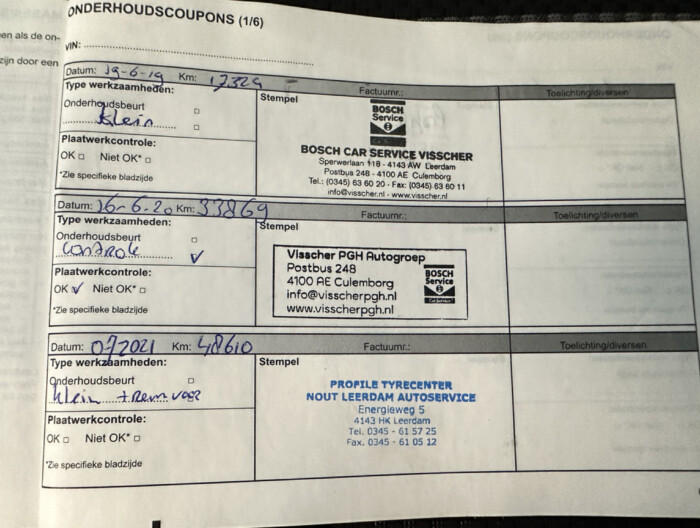 ONDERHOUDSCOUPONS (1/6)
en als de on-
zijn door een
VIN:
Datum: 19-6-19 Km: 17329 Factuurnr.: Toelichting/diversen
Type werkzaamheden:
Onderhoudsbeurt
klein
Plaatwerkcontrole:
OK □ Niet OK* □
*Zie specifieke bladzijde
Stempel
BOSCH
Service
BOSCH CAR SERVICE VISSCHER
Sperwerlaan 118 - 4143 AW Leerdam
Postbus 248 - 4100 AE Culemborg
Tel.: (0345) 63 60 20 - Fax: (0345) 63 60 11
info@visscher.nl - www.visscher.nl
Datum: 16-6-20 Km: 33869 Factuurnr.: Toelichting/diversen
Type werkzaamheden:
Onderhoudsbeurt □
controle ✓
Plaatwerkcontrole:
OK ✓ Niet OK* □
*Zie specifieke bladzijde
Stempel
Visscher PGH Autogroep
Postbus 248
4100 AE Culemborg
info@visscherpgh.nl
www.visscherpgh.nl
BOSCH
Service
Datum: 07 2021 Km: 48610 Factuurnr.: Toelichting/diversen
Type werkzaamheden:
Onderhoudsbeurt □
klein + rem voor
Plaatwerkcontrole:
OK □ Niet OK* □
*Zie specifieke bladzijde
Stempel
PROFILE TYRECENTER
NOUT LEERDAM AUTOSERVICE
Energieweg 5
4143 HK Leerdam
Tel. 0345 - 61 57 25
Fax. 0345 - 61 05 12